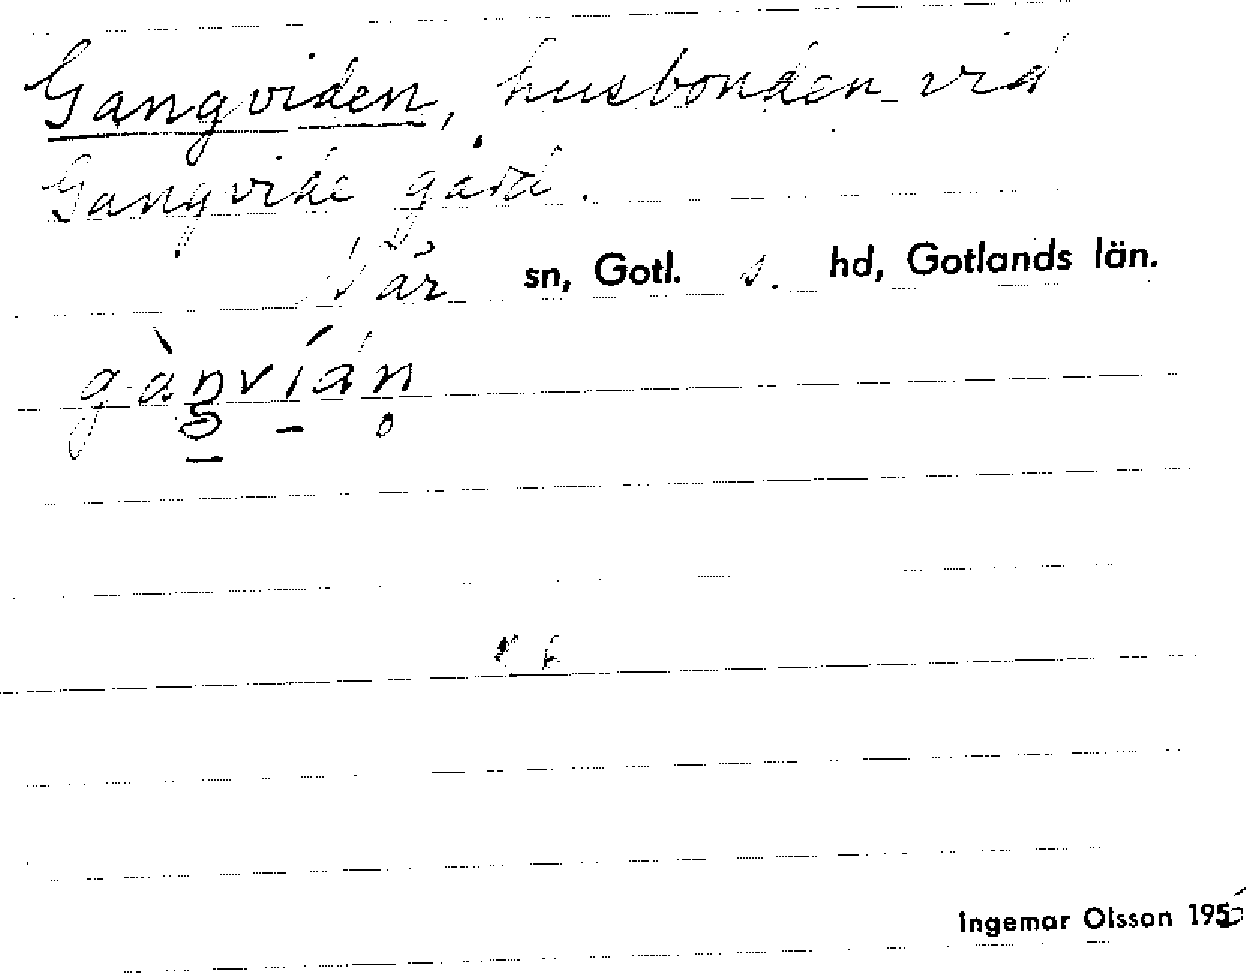 Gangviden, husbonden vid
Gangvide gård.
När sn, Gotl. s. hd, Gotlands län.
Ingemar Olsson 195